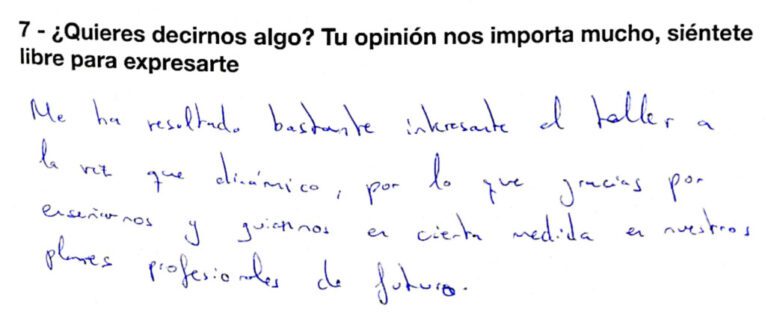 7 - ¿Quieres decirnos algo? Tu opinión nos importa mucho, siéntete
libre para expresarte
Me ha resultado bastante interesante el taller a
la vez que dinámico, por lo que gracias por
enseñarnos y guiarnos en cierta medida en nuestros
planes profesionales de futuro.